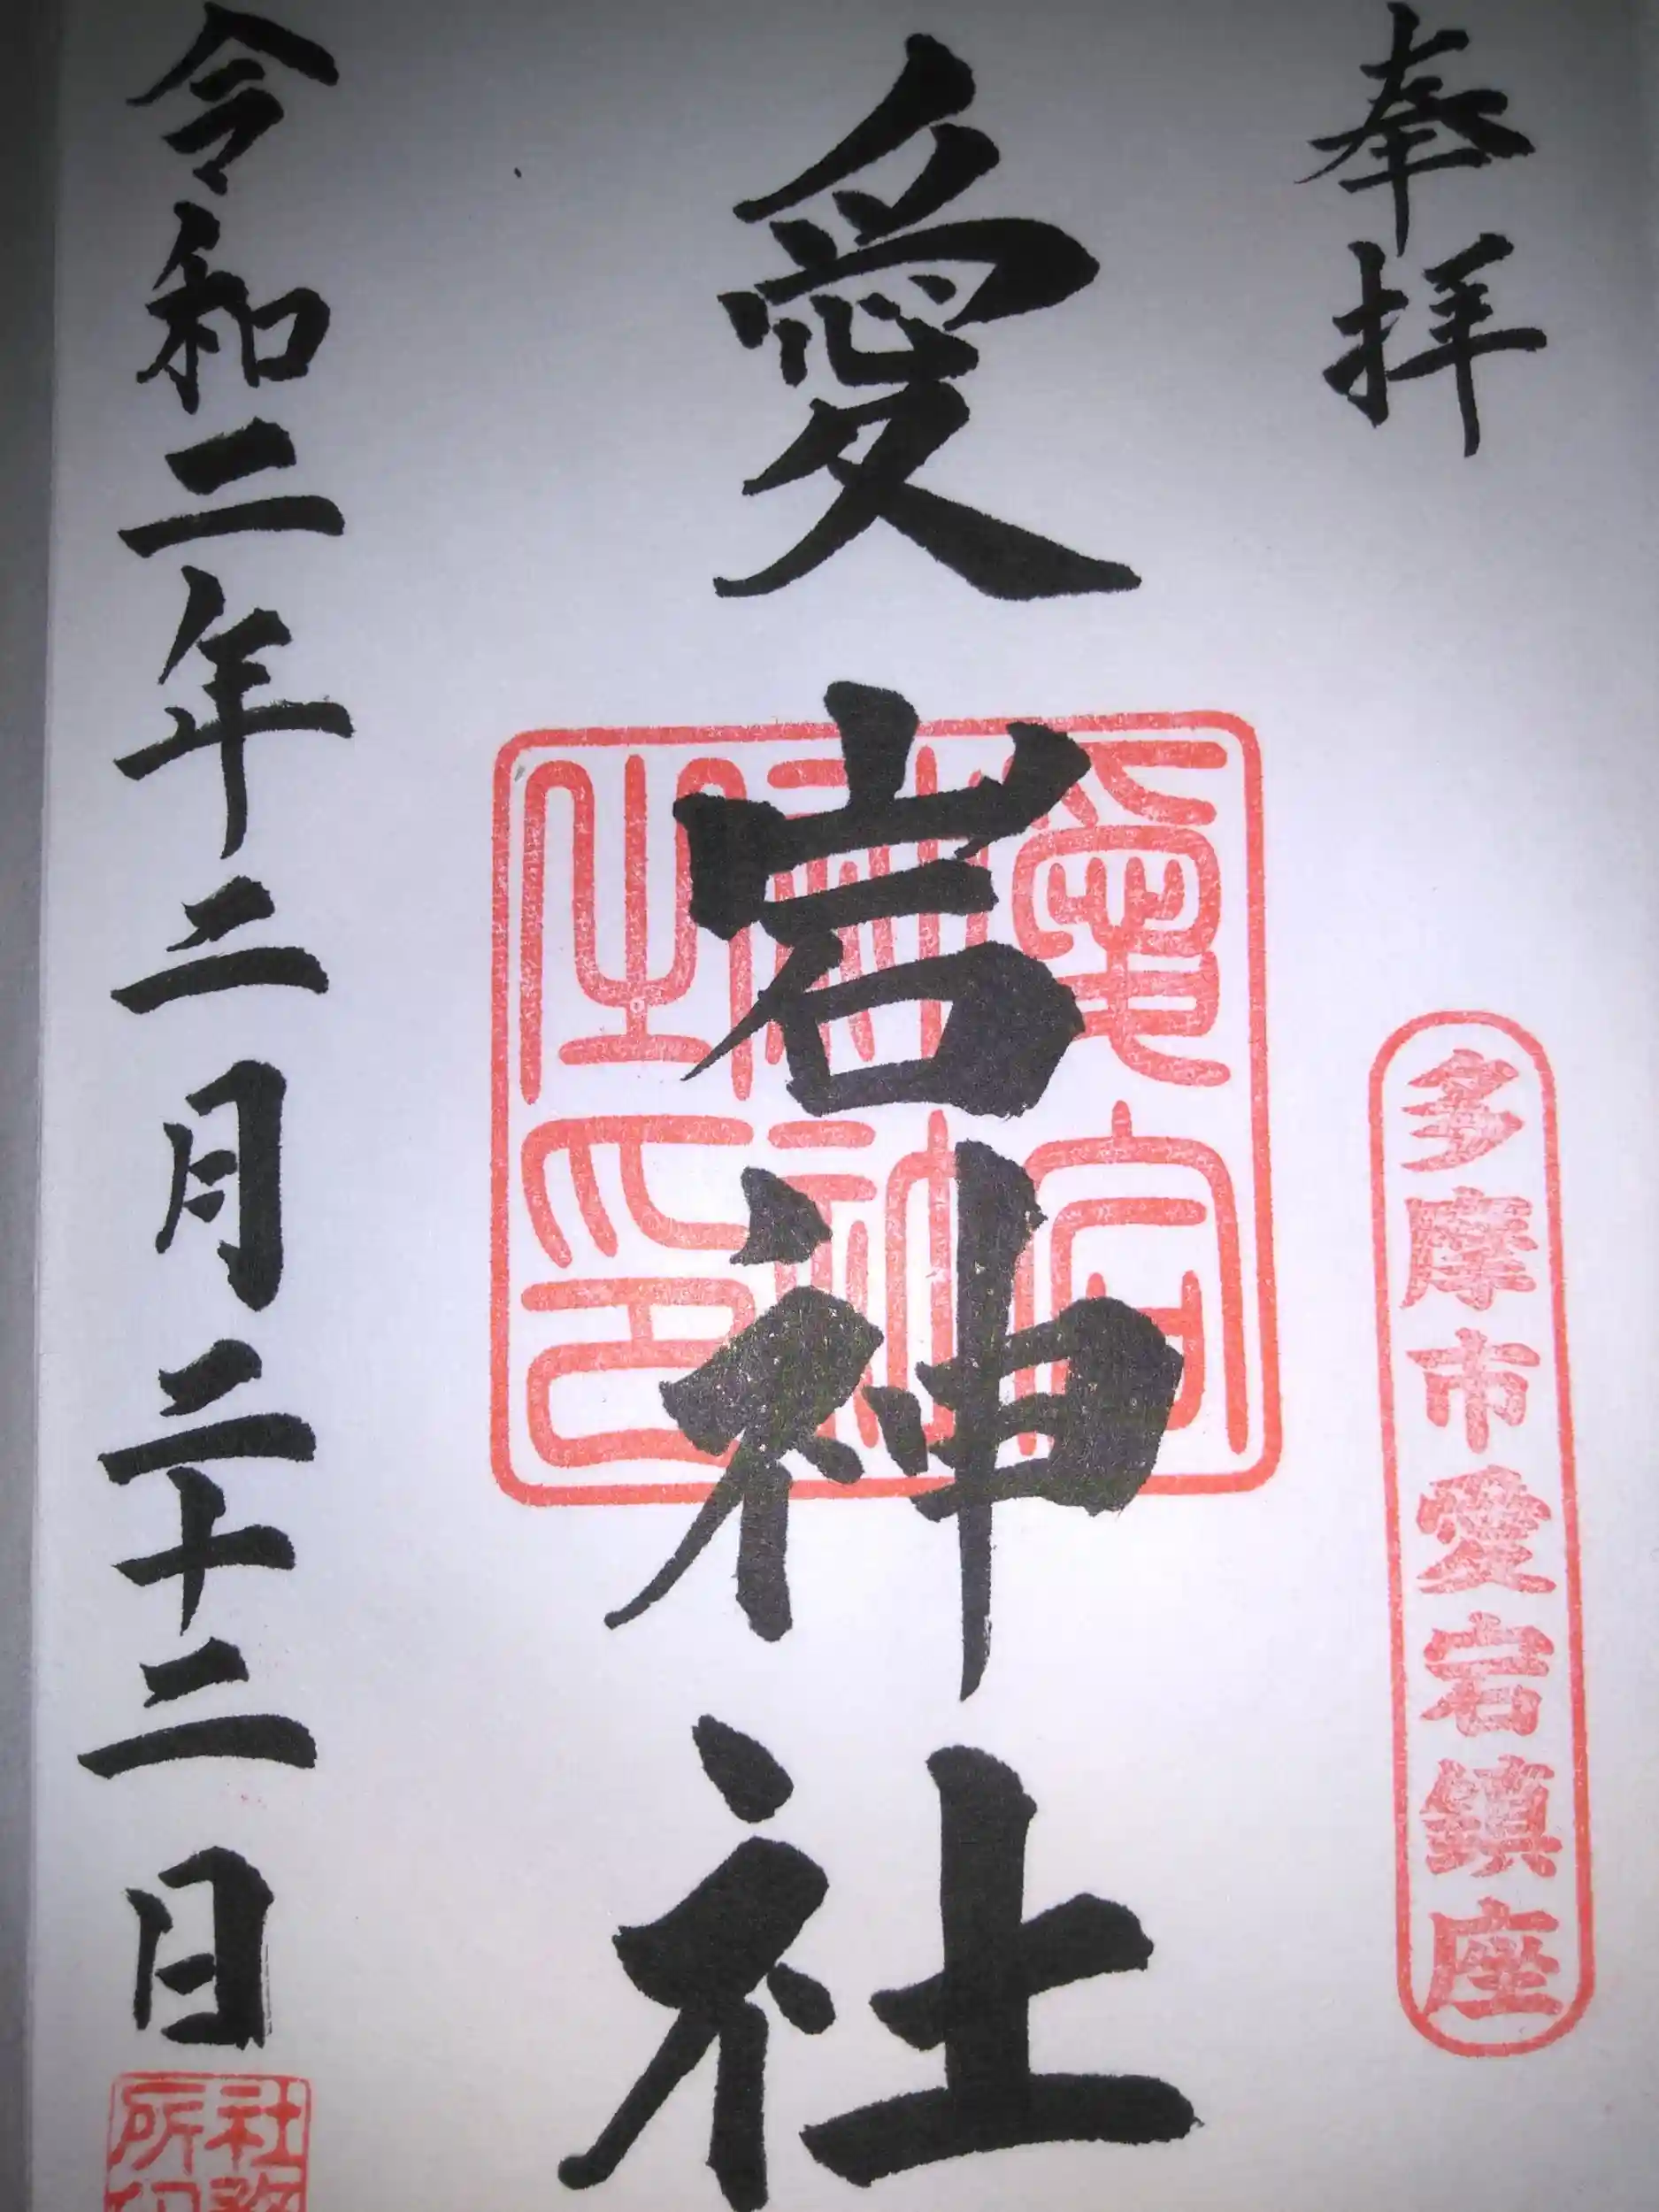 奉拝
多摩市愛宕鎮座
愛宕神社
愛宕
之印
令和二年二月二十二日
社務
所印